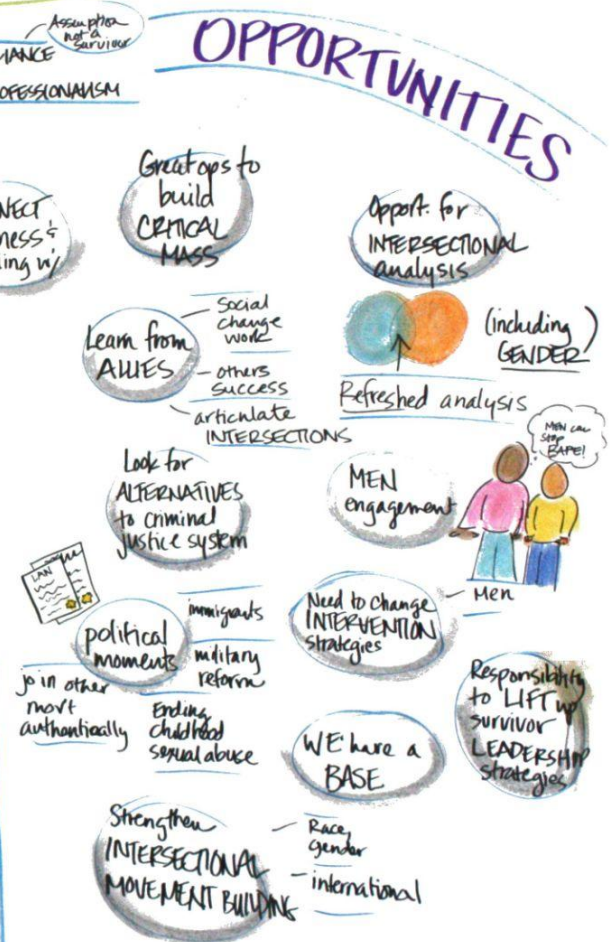 Assumption
not a
survivor
OPPORTUNITIES
Great ops to
build
CRITICAL
MASS
Opport. for
INTERSECTIONAL
analysis
(including
GENDER)
Refreshed analysis
Learn from
ALLIES
- social
change
work
- others
success
- articulate
INTERSECTIONS
Look for
ALTERNATIVES
to criminal
justice system
MEN
engagement
MEN can
stop
RAPE!
LAW
political
moments
immigrants
military
reform
Ending
childhood
sexual abuse
join in other
mov't
authentically
Need to change
INTERVENTION
strategies
- Men
Responsibility
to LIFT up
survivor
LEADERSHIP
strategies
WE have a
BASE
Strengthen
INTERSECTIONAL
MOVEMENT BUILDING
- Race,
gender
- international